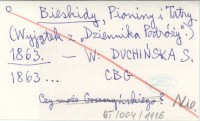 Bieskidy, Pioniny i Tatry.
(Wyjątek z „Dziennika Podróży".)
1863. — W. DUCHIŃSKA S.
1863... CBG
Czy może Goszczyńskiego? Nie.
BJ/004/1116